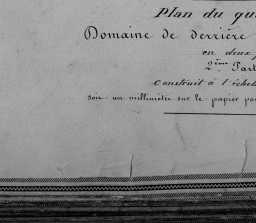 Plan du qu
Domaine de derrière
en deux p
2ème Part
Construit à l'échel
soit un millimètre sur le papier pa